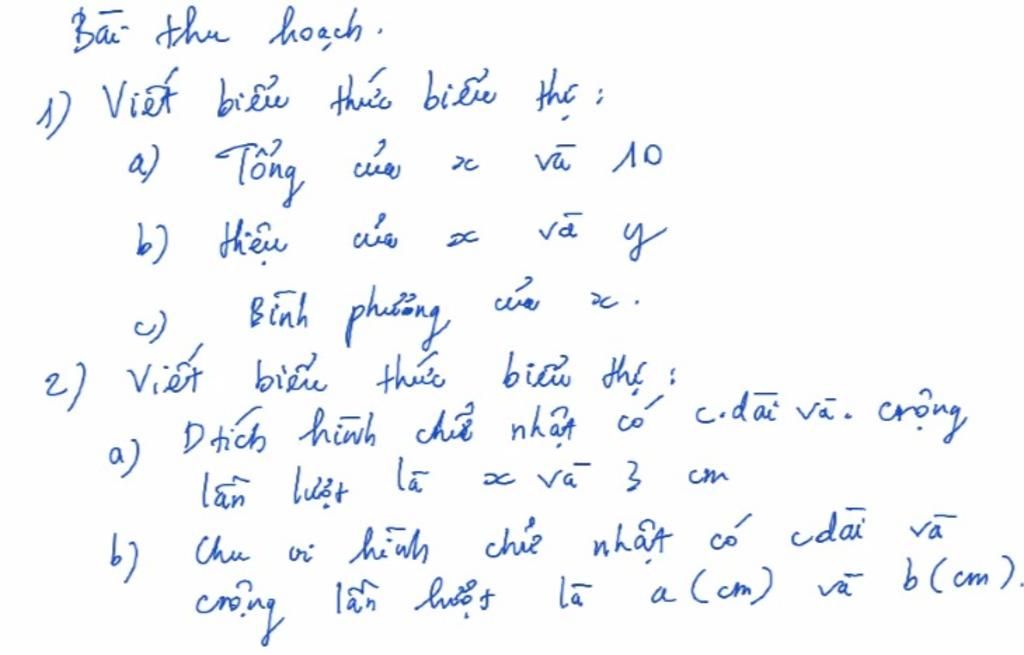 Bài thu hoạch.
1) Viết biểu thức biểu thị :
a) Tổng của x và 10
b) Hiệu của x và y
c) Bình phương của x.
2) Viết biểu thức biểu thị :
a) Dtích hình chữ nhật có c.dài và c.rộng
lần lượt là x và 3 cm
b) Chu vi hình chữ nhật có cdài và
crộng lần lượt là a (cm) và b (cm).